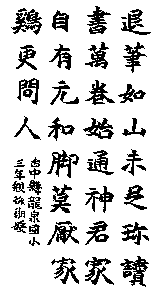 退筆如山未足珍讀
書萬卷始通神君家
自有元和脚莫厭家
鷄更問人
台中縣龍泉國小
三年級